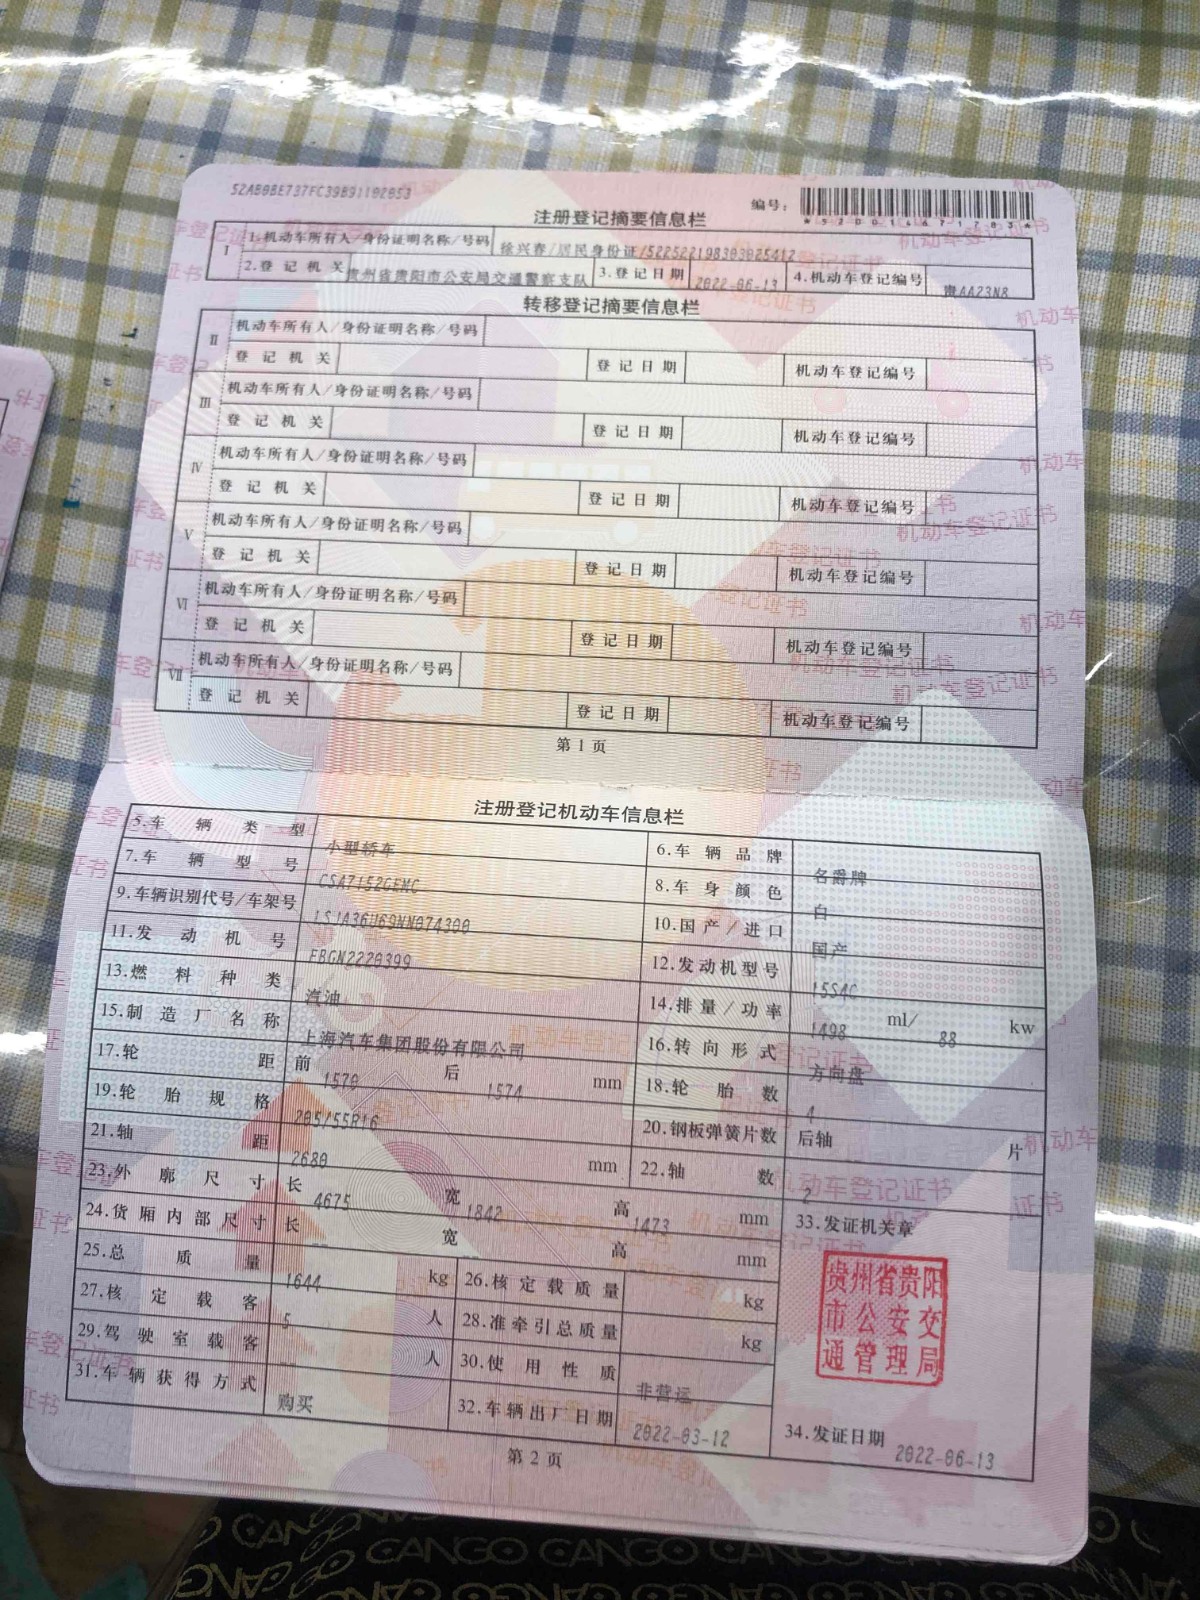 52AB0BE737FC39B91102053
编号：
*520014671253*
注册登记摘要信息栏
I 1.机动车所有人/身份证明名称/号码 徐兴春/居民身份证/522522198303025412
2.登记机关 贵州省贵阳市公安局交通警察支队 3.登记日期 2022-06-13 4.机动车登记编号 贵AA23N8
转移登记摘要信息栏
II 机动车所有人/身份证明名称/号码
登记机关 登记日期 机动车登记编号
III 机动车所有人/身份证明名称/号码
登记机关 登记日期 机动车登记编号
IV 机动车所有人/身份证明名称/号码
登记机关 登记日期 机动车登记编号
V 机动车所有人/身份证明名称/号码
登记机关 登记日期 机动车登记编号
VI 机动车所有人/身份证明名称/号码
登记机关 登记日期 机动车登记编号
VII 机动车所有人/身份证明名称/号码
登记机关 登记日期 机动车登记编号
第1页
注册登记机动车信息栏
5.车辆类型 小型轿车 6.车辆品牌 名爵牌
7.车辆型号 CSA7152GEMC 8.车身颜色 白
9.车辆识别代号/车架号 LSJA36U69NN074300 10.国产/进口 国产
11.发动机号 FBGN2220399 12.发动机型号 15S4C
13.燃料种类 汽油 14.排量/功率 1498 ml/ 88 kw
15.制造厂名称 上海汽车集团股份有限公司 16.转向形式 方向盘
17.轮距 前 1570 后 1574 mm 18.轮胎数 4
19.轮胎规格 205/55R16 20.钢板弹簧片数 后轴 片
21.轴距 2680 mm 22.轴数 2
23.外廓尺寸 长 4675 宽 1842 高 1473 mm 33.发证机关章
24.货厢内部尺寸 长 宽 高 mm
25.总质量 1644 kg 26.核定载质量 kg
27.核定载客 5 人 28.准牵引总质量 kg
29.驾驶室载客 人 30.使用性质 非营运
31.车辆获得方式 购买 32.车辆出厂日期 2022-03-12 34.发证日期 2022-06-13
贵州省贵阳
市公安交
通管理局
第2页
CANGO CANGO CANGO CANGO